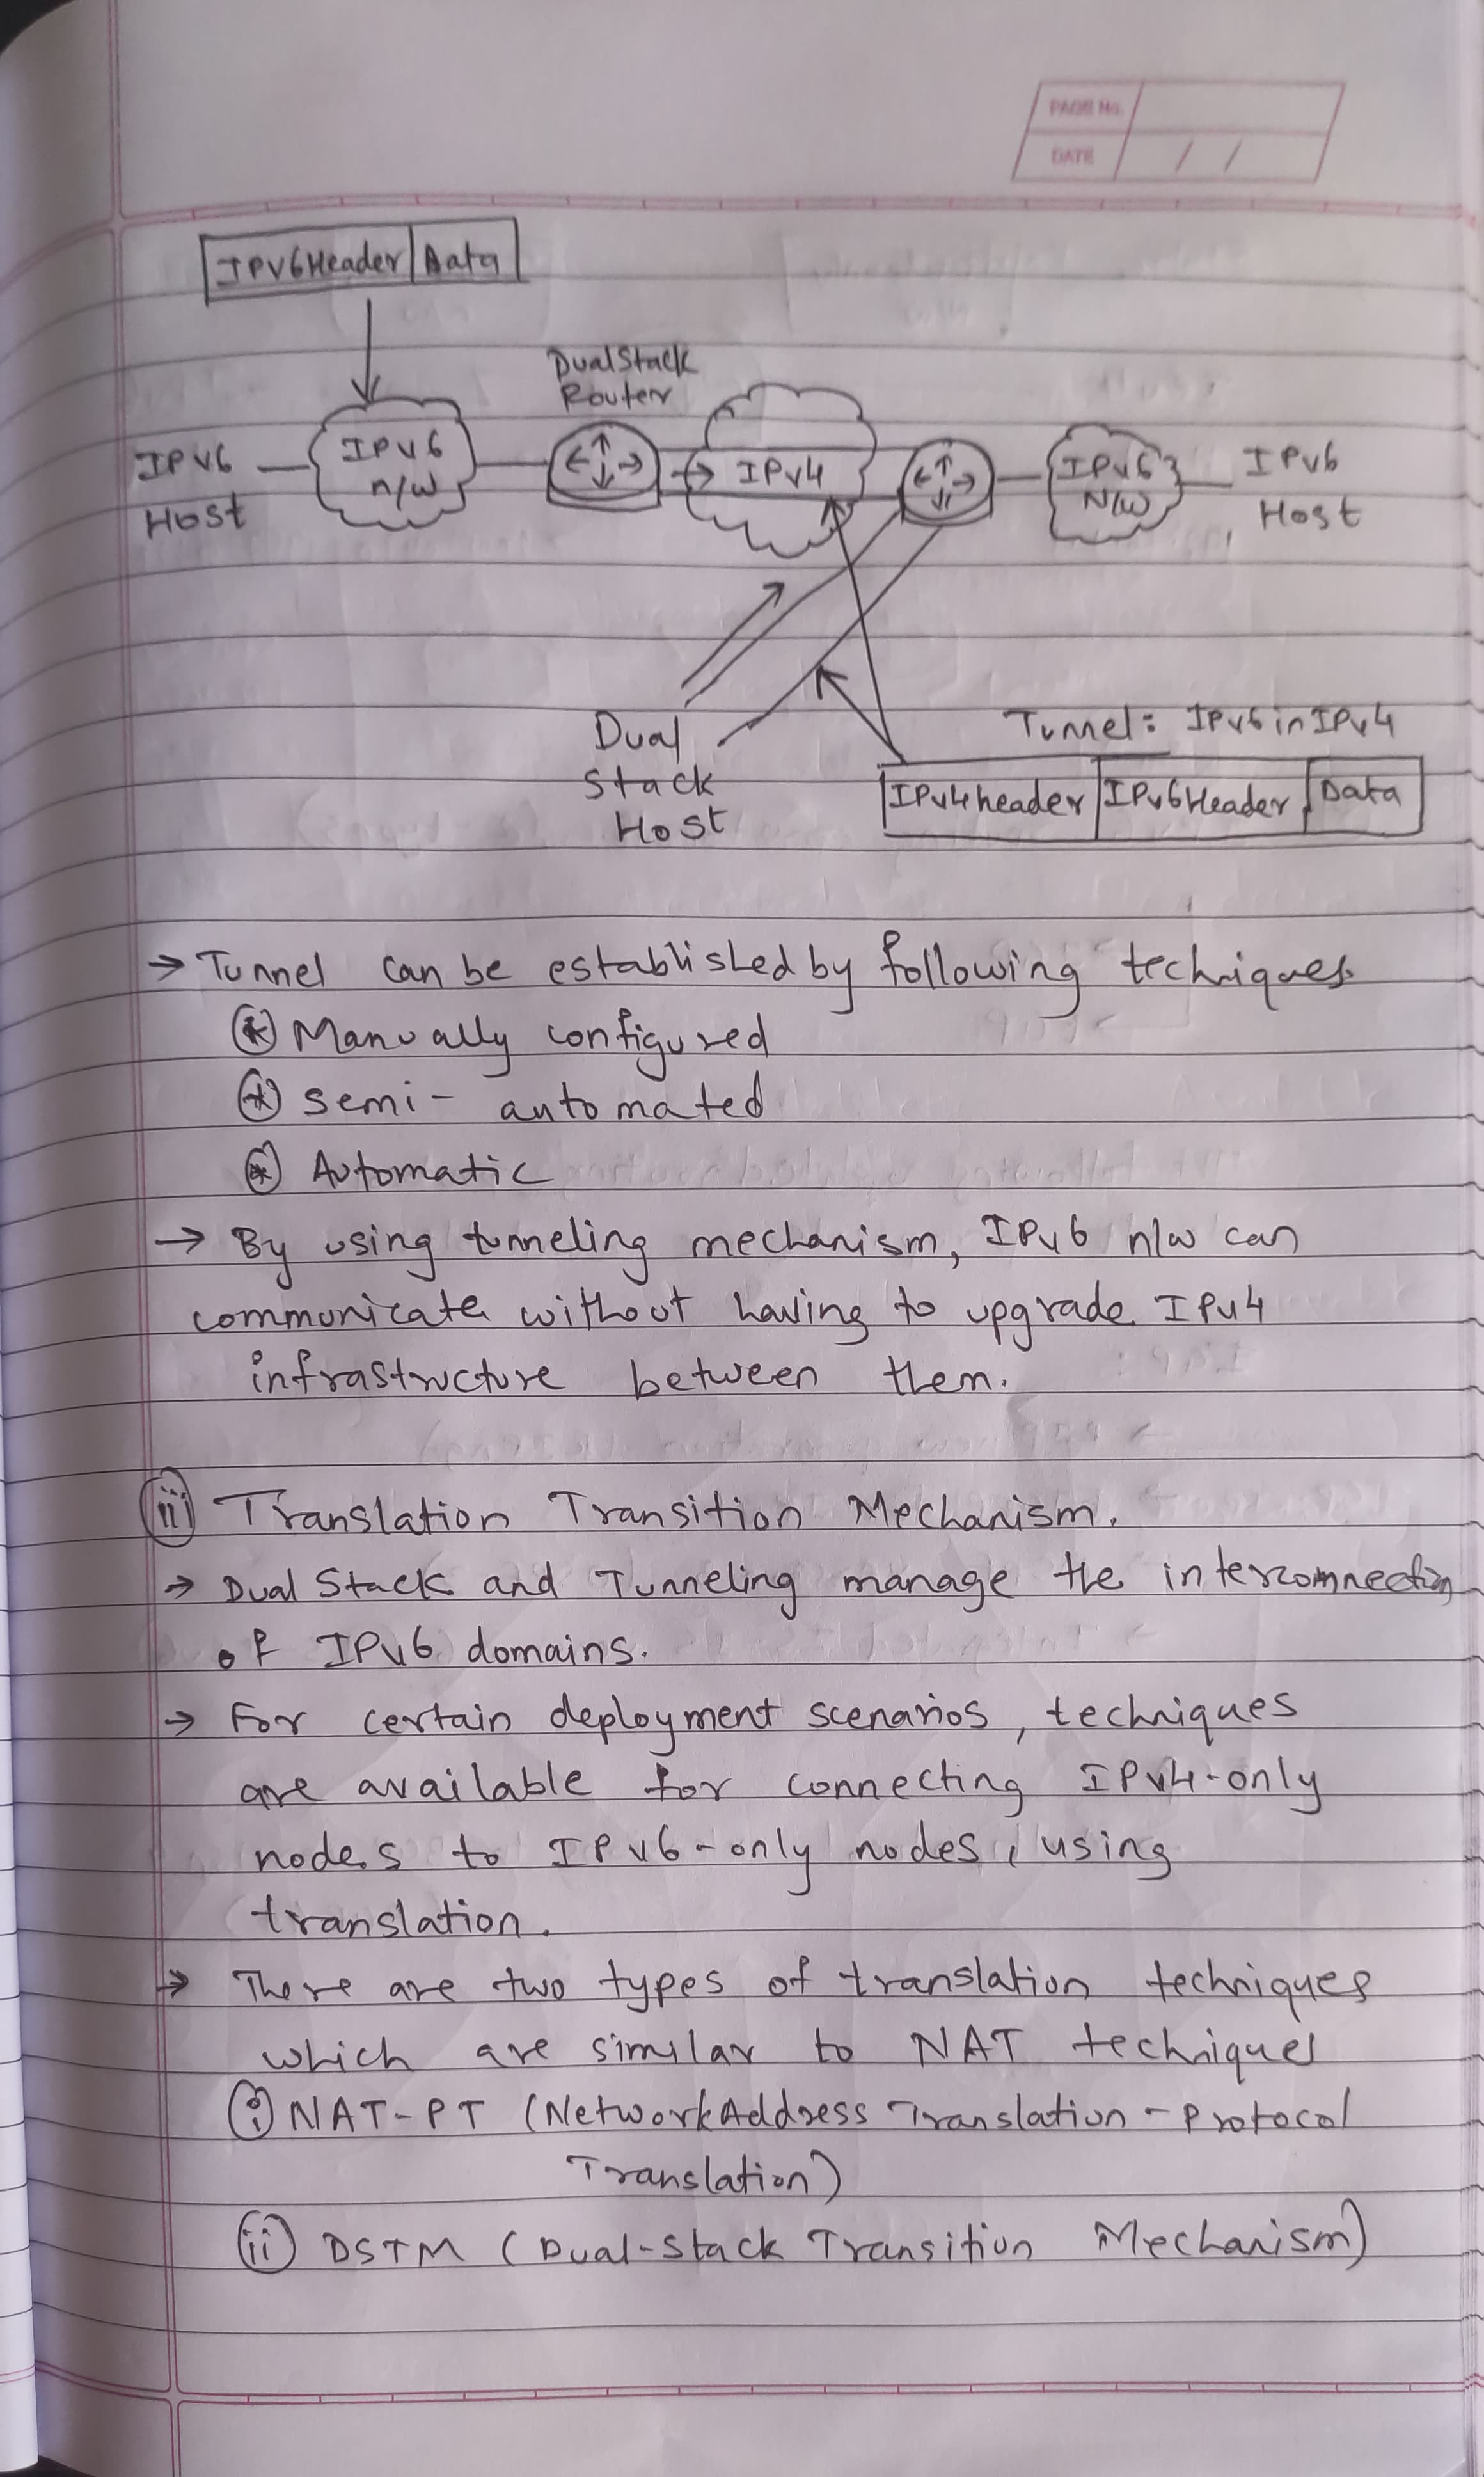 PAGE No.
DATE / /
IPv6Header Data
DualStack
Router
IPV6
Host
IPV6
n/w
IPv4
IPv6
N/W
IPv6
Host
Dual
Stack
Host
Tunnel: IPv6inIPv4
IPv4header IPv6Header Data
→ Tunnel can be established by following techniques.
* Manually configured
* semi-automated
* Automatic
→ By using tunneling mechanism, IPv6 n/w can
communicate without having to upgrade IPv4
infrastructure between them.
iii Translation Transition Mechanism.
→ Dual Stack and Tunneling manage the interconnection
of IPv6 domains.
→ For certain deployment scenarios, techniques
are available for connecting IPv4-only
nodes to IPv6-only nodes, using
translation.
→ There are two types of translation techniques
which are similar to NAT techniques
i NAT-PT (NetworkAddress Translation-Protocol
Translation)
ii DSTM (Dual-Stack Transition Mechanism)